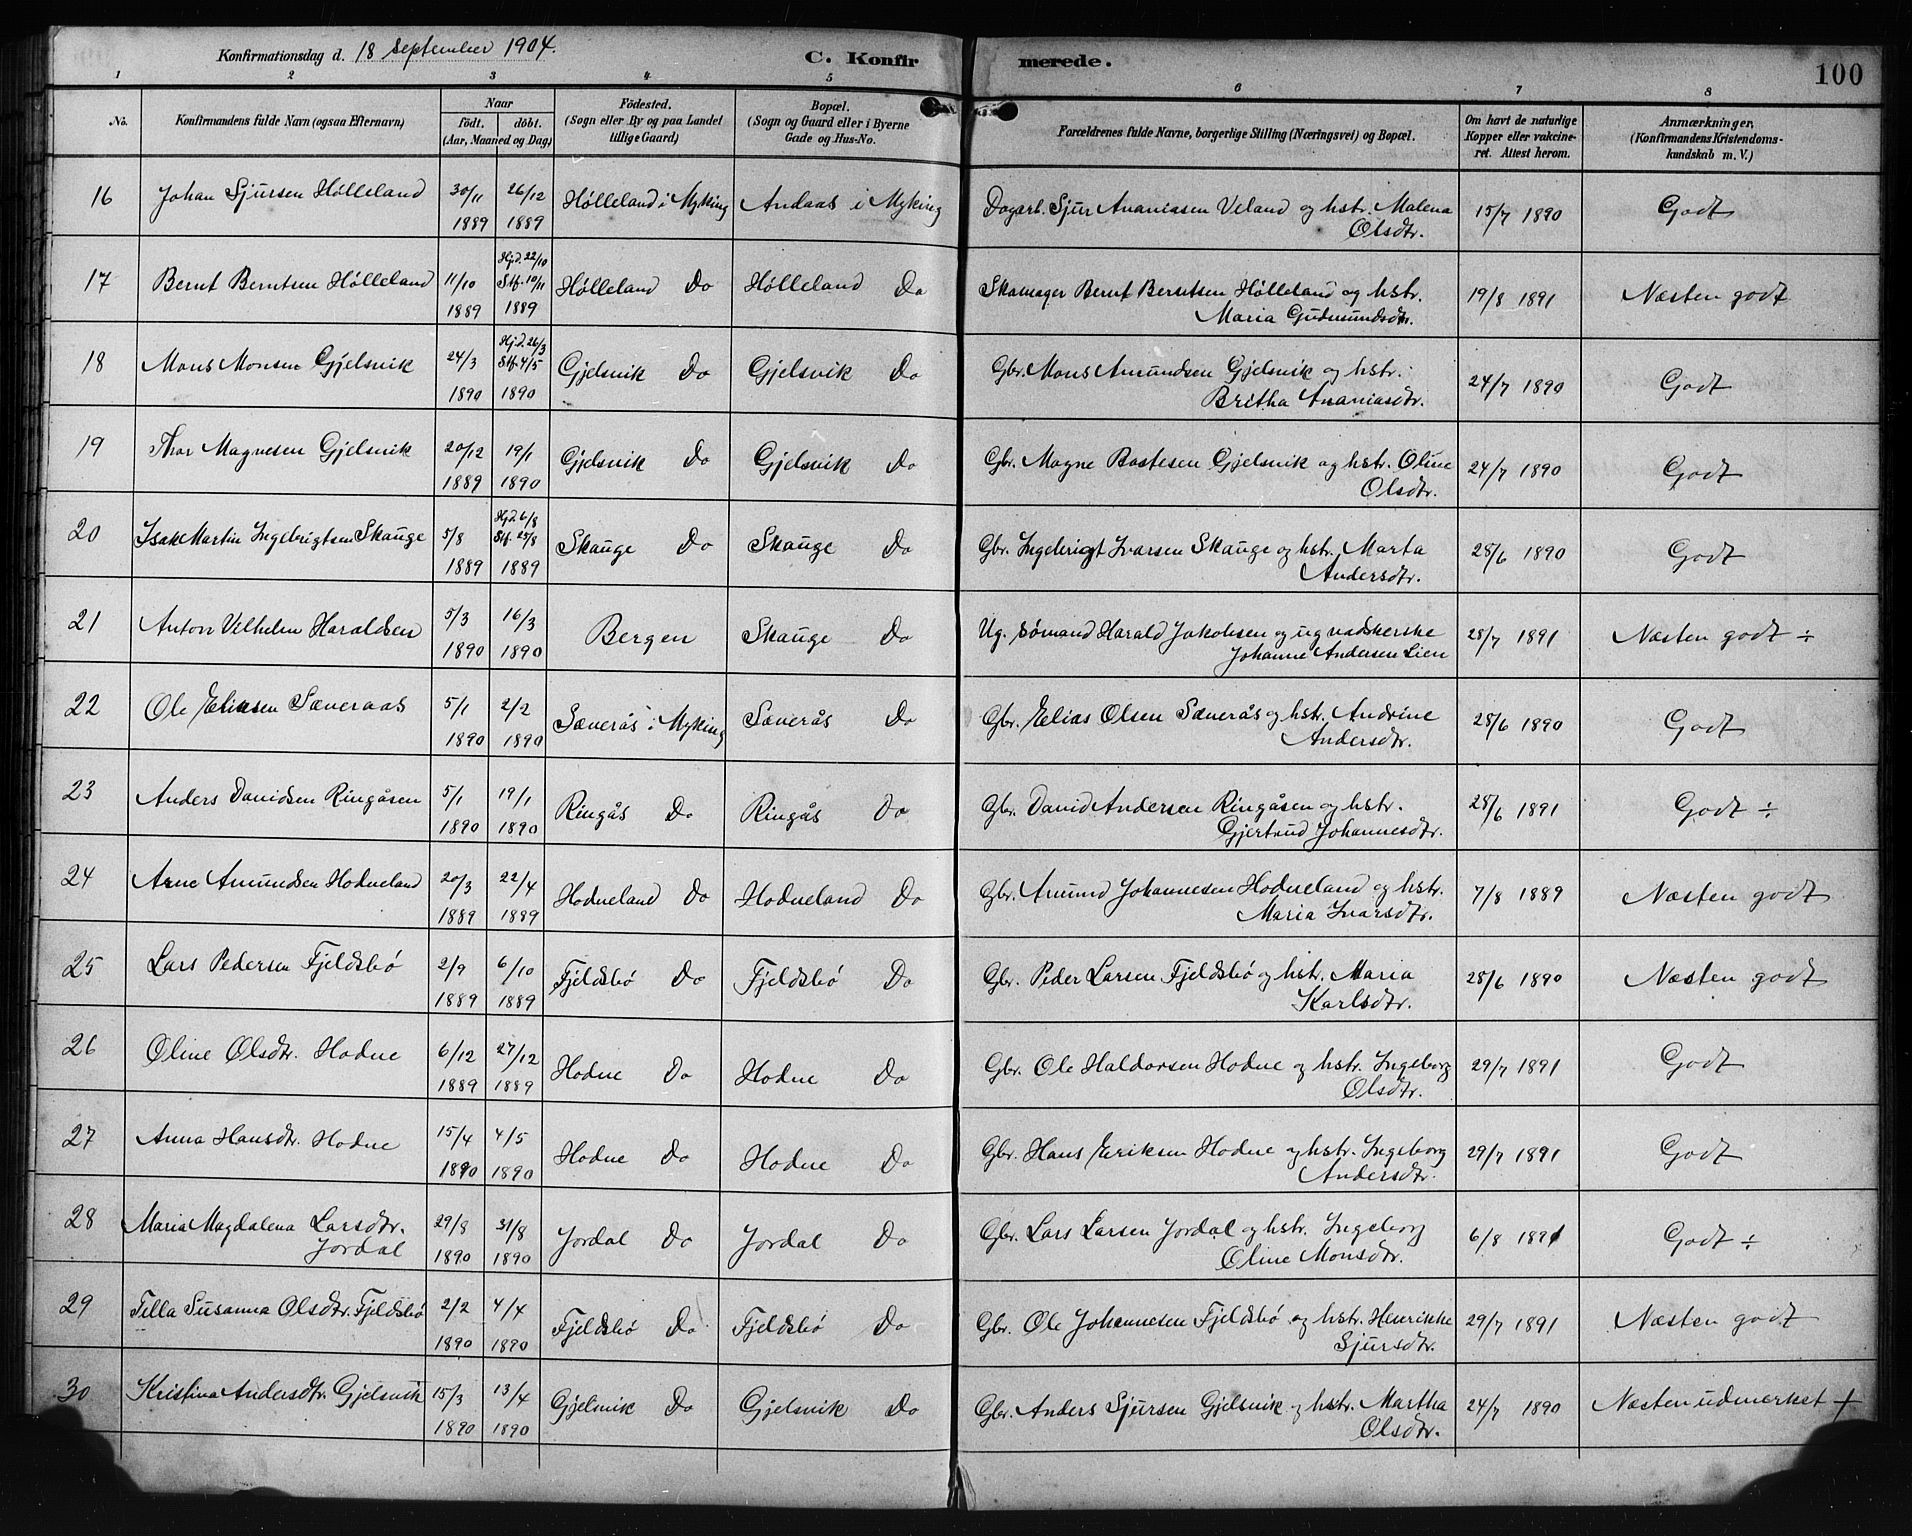 Konfirmationsdag d. 18 September 1904. C. Konfirmerede. 100
1 2 3 4 5 6 7 8
No. Konfirmandens fulde Navn (ogsaa Efternavn) Naar födt. döbt. (Aar, Maaned og Dag) Födested. (Sogn eller By og paa Landet tillige Gaard) Bopæl. (Sogn og Gaard eller i Byerne Gade og Hus-No. Forældrenes fulde Navne, borgerlige Stilling (Næringsvei) og Bopæl. Om havt de naturlige Kopper eller vakcineret. Attest herom. Anmærkninger, (Konfirmandens Kristendomskundskab m. V.)
16 Johan Sjursen Hølleland 30/11 1889 26/12 1889 Hølleland i Myking Andaas i Myking Dagarb. Sjur Ananiasen Veland og hstr. Malena Olsdtr. 15/7 1890 Godt
17 Bernt Berntsen Hølleland 11/10 1889 Hjd. 22/10 Stf. 10/11 1889 Hølleland Do Hølleland Do Skomager Bernt Berntsen Hølleland og hstr. Maria Gudmundsdtr. 19/8 1891 Næsten godt
18 Mons Monsen Gjelsvik 24/3 1890 Hjd. 26/3 Stf. 4/5 1890 Gjelsvik Do Gjelsvik Do Gbr. Mons Amundsen Gjelsvik og hstr. Britha Ananiasdtr. 24/7 1890 Godt
19 Thor Magnesen Gjelsvik 20/12 1889 19/1 1890 Gjelsvik Do Gjelsvik Do Gbr. Magne Bastesen Gjelsvik og hstr. Oline Olsdtr. 24/7 1890 Godt
20 Isak Martin Ingebrigtsen Skauge 5/8 1889 Hjd. 6/8 Stf. 25/8 1889 Skauge Do Skauge Do Gbr. Ingebrigt Ivarsen Skauge og hstr. Marta Andersdtr. 28/6 1890 Godt
21 Anton Vilhelm Haraldsen 5/3 1890 16/3 1890 Bergen Skauge Do Ug. sømand Harald Jakobsen og ug vadskerske Johanne Andersen Lien 28/7 1891 Næsten godt ÷
22 Ole Eliasen Sæveraas 5/1 1890 2/2 1890 Sæverås i Myking Sæverås Do Gbr. Elias Olsen Sæverås og hstr. Andrine Andersdtr. 28/6 1890 Godt
23 Anders Davidsen Ringåsen 5/1 1890 19/1 1890 Ringås Do Ringås Do Gbr. David Andersen Ringåsen og hstr. Gjertrud Johannesdtr. 28/6 1891 Godt ÷
24 Arne Amundsen Hodneland 20/3 1889 22/4 1889 Hodneland Do Hodneland Do Gbr. Amund Johannesen Hodneland og hstr. Maria Ivarsdtr. 7/8 1889 Næsten godt
25 Lars Pedersen Fjeldsbö 2/9 1889 6/10 1889 Fjeldsbö Do Fjeldsbö Do Gbr. Peder Larsen Fjeldsbö og hstr. Maria Karlsdtr. 28/6 1890 Næsten godt
26 Oline Olsdtr. Hodne 6/12 1889 27/12 1889 Hodne Do Hodne Do Gbr. Ole Haldorsen Hodne og hstr. Ingeborg Olsdtr. 29/7 1891 Godt
27 Anna Hansdtr. Hodne 15/4 1890 4/5 1890 Hodne Do Hodne Do Gbr. Hans Eriksen Hodne og hstr. Ingeborg Andersdtr. 29/7 1891 Godt
28 Maria Magdalena Larsdtr. Jordal 29/8 1890 31/8 1890 Jordal Do Jordal Do Gbr. Lars Larsen Jordal og hstr. Ingeborg Oline Monsdtr. 6/8 1891 Godt ÷
29 Tella Susanna Olsdtr. Fjeldsbö 2/2 1890 4/4 1890 Fjeldsbö Do Fjeldsbö Do Gbr. Ole Johannesen Fjeldsbö og hstr. Henrikke Sjursdtr. 29/7 1891 Næsten godt
30 Kristina Andersdtr. Gjelsvik 15/3 1890 13/4 1890 Gjelsvik Do Gjelsvik Do Gbr. Anders Sjursen Gjelsvik og hstr. Martha Olsdtr. 24/7 1890 Næsten udmerket +